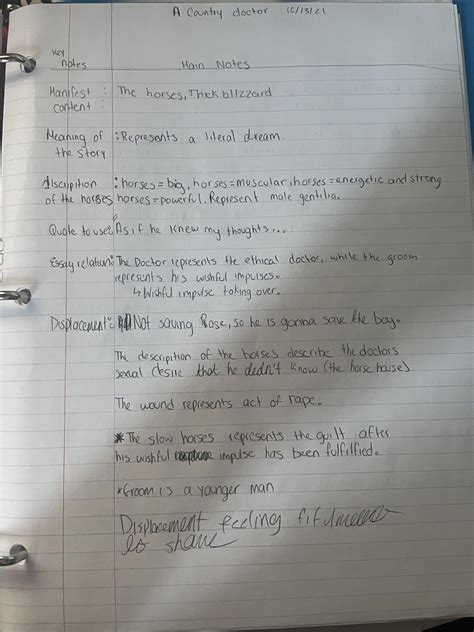 A Country doctor 10/13/21
Key
notes Main Notes
Manifest : The horses, Thick blizzard
content :
Meaning of : Represents a literal dream.
the story
discription : horses = big, horses = muscular, horses = energetic and strong
of the horses horses = powerful. Represent male gentilia.
Quote to use: As if he knew my thoughts...
Essay relation: The Doctor represents the ethical doctor, while the groom
represents his wishful impulses.
↳ Wishful impulse taking over.
Displacement: Not saving Rose, so he is gonna save the boy.
The description of the horses describe the doctors
sexual desire that he dedn't know (the horse house)
The wound represents act of rape.
* The slow horses represents the guilt after
his wishful impulse has been fulfilfed.
* Groom is a younger man
Displacement feeling